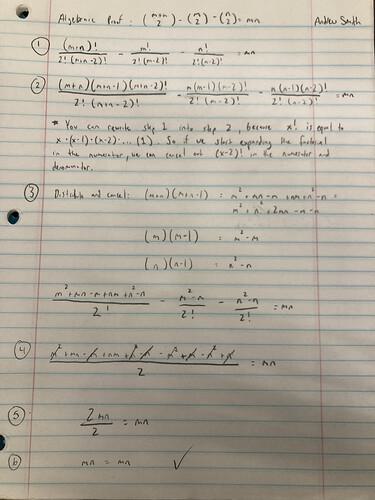 Algebraic Proof: (m+n 2) - (m 2) - (n 2) = mn Andrew Smith
① (m+n)! / 2!(m+n-2)! - m! / 2!(m-2)! - n! / 2!(n-2)! = mn
② (m+n)(m+n-1)(m+n-2)! / 2!(m+n-2)! - m(m-1)(m-2)! / 2!(m-2)! - n(n-1)(n-2)! / 2!(n-2)! = mn
* You can rewrite step 1 into step 2, because x! is equal to
x·(x-1)·(x-2)·...(1). So if we start expanding the factorial
in the numerator, we can cancel out (x-2)! in the numerator and
denominator.
③ Distribute and cancel: (m+n)(m+n-1) = m²+mn-m+nm+n²-n =
m²+n²+2mn-m-n
(m)(m-1) = m²-m
(n)(n-1) = n²-n
m²+mn-m+nm+n²-n / 2! - m²-m / 2! - n²-n / 2! = mn
④ m²+mn-m+nm+n²-n-m²+m-n²+n / 2 = mn
⑤ 2mn / 2 = mn
⑥ mn = mn ✓